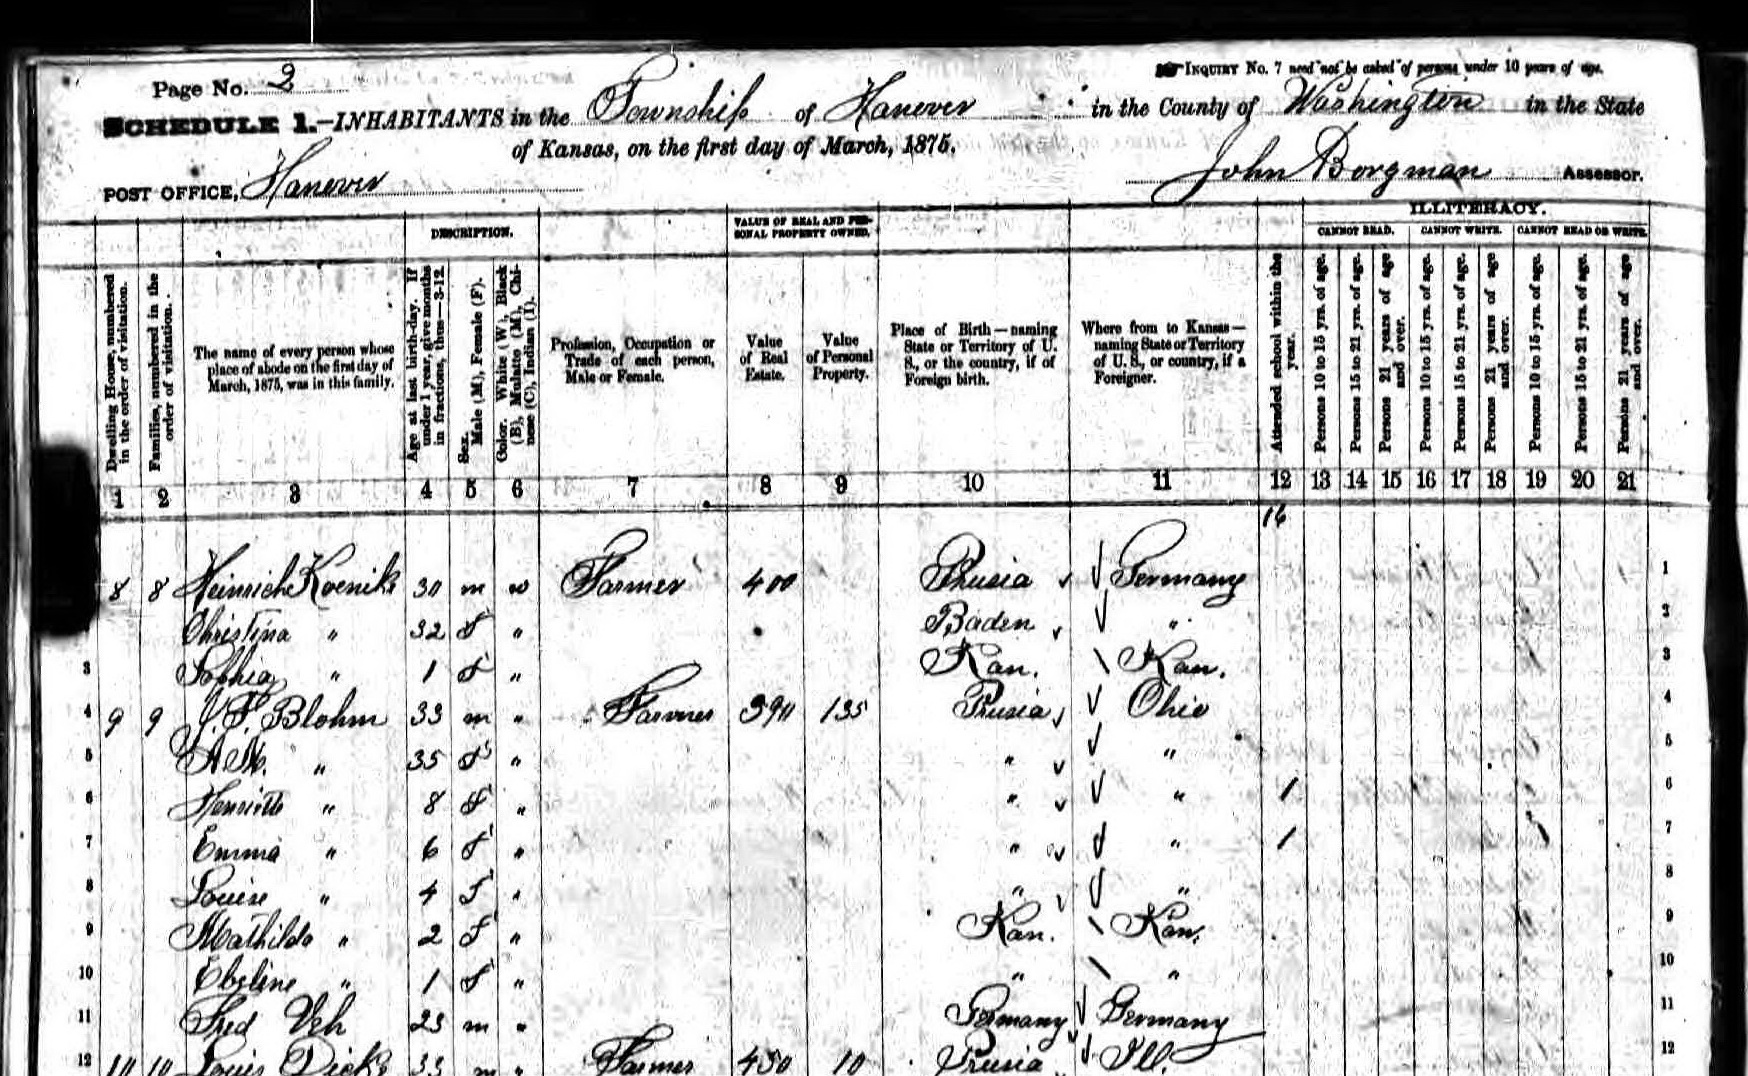 Page No. 2
INQUIRY No. 7 need not be asked of persons under 10 years of age.
SCHEDULE 1.—INHABITANTS in the Township of Hanover in the County of Washington in the State
of Kansas, on the first day of March, 1875.
POST OFFICE, Hanover
John Borgman Assessor.
ILLITERACY.
DESCRIPTION.
VALUE OF REAL AND PERSONAL PROPERTY OWNED.
CANNOT READ. CANNOT WRITE. CANNOT READ OR WRITE.
Dwelling House, numbered in the order of visitation.
Families, numbered in the order of visitation.
The name of every person whose place of abode on the first day of March, 1875, was in this family.
Age at last birth-day. If under 1 year, give months in fractions, thus—3-12.
Sex. Male (M), Female (F).
Color. White (W), Black (B), Mulatto (M), Chinese (C), Indian (I).
Profession, Occupation or Trade of each person, Male or Female.
Value of Real Estate.
Value of Personal Property.
Place of Birth—naming State or Territory of U. S., or the country, if of Foreign birth.
Where from to Kansas—naming State or Territory of U. S., or country, if a Foreigner.
Attended school within the year.
Persons 10 to 15 yrs. of age.
Persons 15 to 21 yrs. of age.
Persons 21 years of age and over.
Persons 10 to 15 yrs. of age.
Persons 15 to 21 yrs. of age.
Persons 21 years of age and over.
Persons 10 to 15 yrs. of age.
Persons 15 to 21 yrs. of age.
Persons 21 years of age and over.
1 2 3 4 5 6 7 8 9 10 11 12 13 14 15 16 17 18 19 20 21
16
8 8 Heinrich Koenik 30 m w Farmer 400 Prusia Germany 1
Christina " 32 F " Baden " 2
3 Sophia " 1 F " Kan. Kan. 3
4 9 9 J. F. Blohm 33 m " Farmer 390 135 Prusia Ohio 4
5 A M. " 35 F " " " 5
6 " 8 F " " " 1 6
7 Emma " 6 F " " " 1 7
8 Louise " 4 F " " " 8
9 Mathilda " 2 F " Kan. Kan. 9
10 " 1 F " " " 10
11 Fred Veh 23 m " Germany Germany 11
12 10 10 Louis Dick 33 m " Farmer 450 10 Prusia Ill. 12